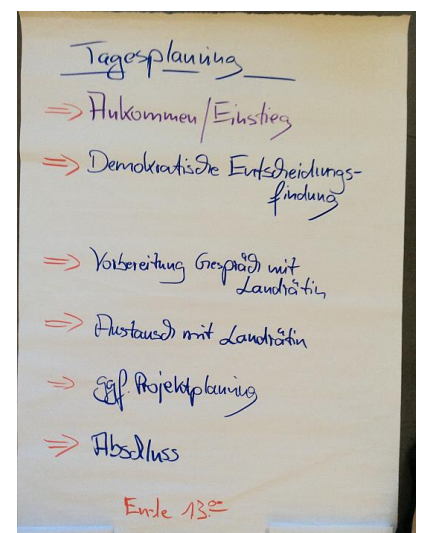 Tagesplanung
⇒ Ankommen/Einstieg
⇒ Demokratische Entscheidungs-
findung
⇒ Vorbereitung Gespräch mit
Landrätin
⇒ Austausch mit Landrätin
⇒ ggf. Projektplanung
⇒ Abschluss
Ende 13.00